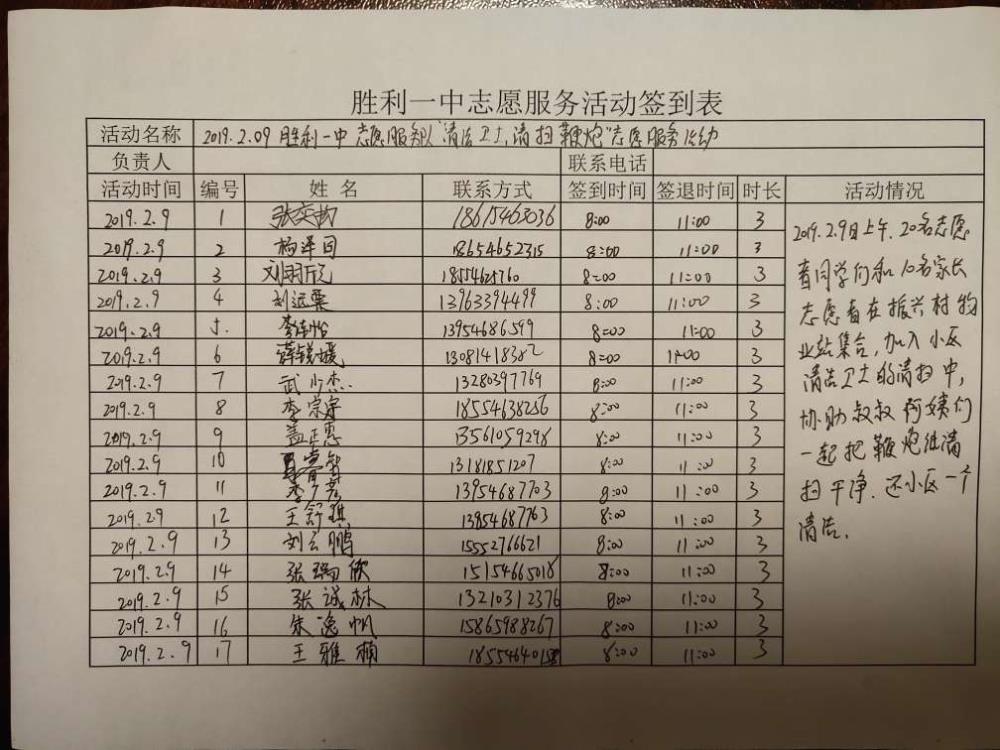 胜利一中志愿服务活动签到表
活动名称 2019.2.09 胜利一中志愿服务队"清洁卫士,清扫鞭炮"志愿服务活动
负责人 联系电话
活动时间 编号 姓名 联系方式 签到时间 签退时间 时长 活动情况
2019.2.9 1 张奕 18615463036 8:00 11:00 3
2019.2.9 2 杨泽同 18654652315 8:00 11:00 3
2019.2.9 3 刘羽欣 8:00 11:00 3
2019.2.9 4 刘远 13963394499 8:00 11:00 3
2019.2.9 5. 李 13954686599 8:00 11:00 3
2019.2.9 6 薛媛 13081418382 8:00 11:00 3
2019.2.9 7 武少杰 13280397769 8:00 11:00 3
2019.2.9 8 李宗 18554638256 8:00 11:00 3
2019.2.9 9 盖正惠 13561059298 8:00 11:00 3
2019.2.9 10 睿智 13181851207 8:00 11:00 3
2019.2.9 11 李 13954687703 8:00 11:00 3
2019.2.9 12 王舒祺 13854687763 8:00 11:00 3
2019.2.9 13 刘云鹏 15552766621 8:00 11:00 3
2019.2.9 14 张瑞欣 15154665018 8:00 11:00 3
2019.2.9 15 张诚林 13210312376 8:00 11:00 3
2019.2.9 16 朱逸帆 15865988267 8:00 11:00 3
2019.2.9 17 王雅楠 8:00 11:00 3
2019.2.9日上午.20名志愿
者同学们和10名家长
志愿者在振兴村物
业站集合,加入小区
清洁卫士的清扫中,
协助叔叔阿姨们
一起把鞭炮纸清
扫干净.还小区一个
清洁.